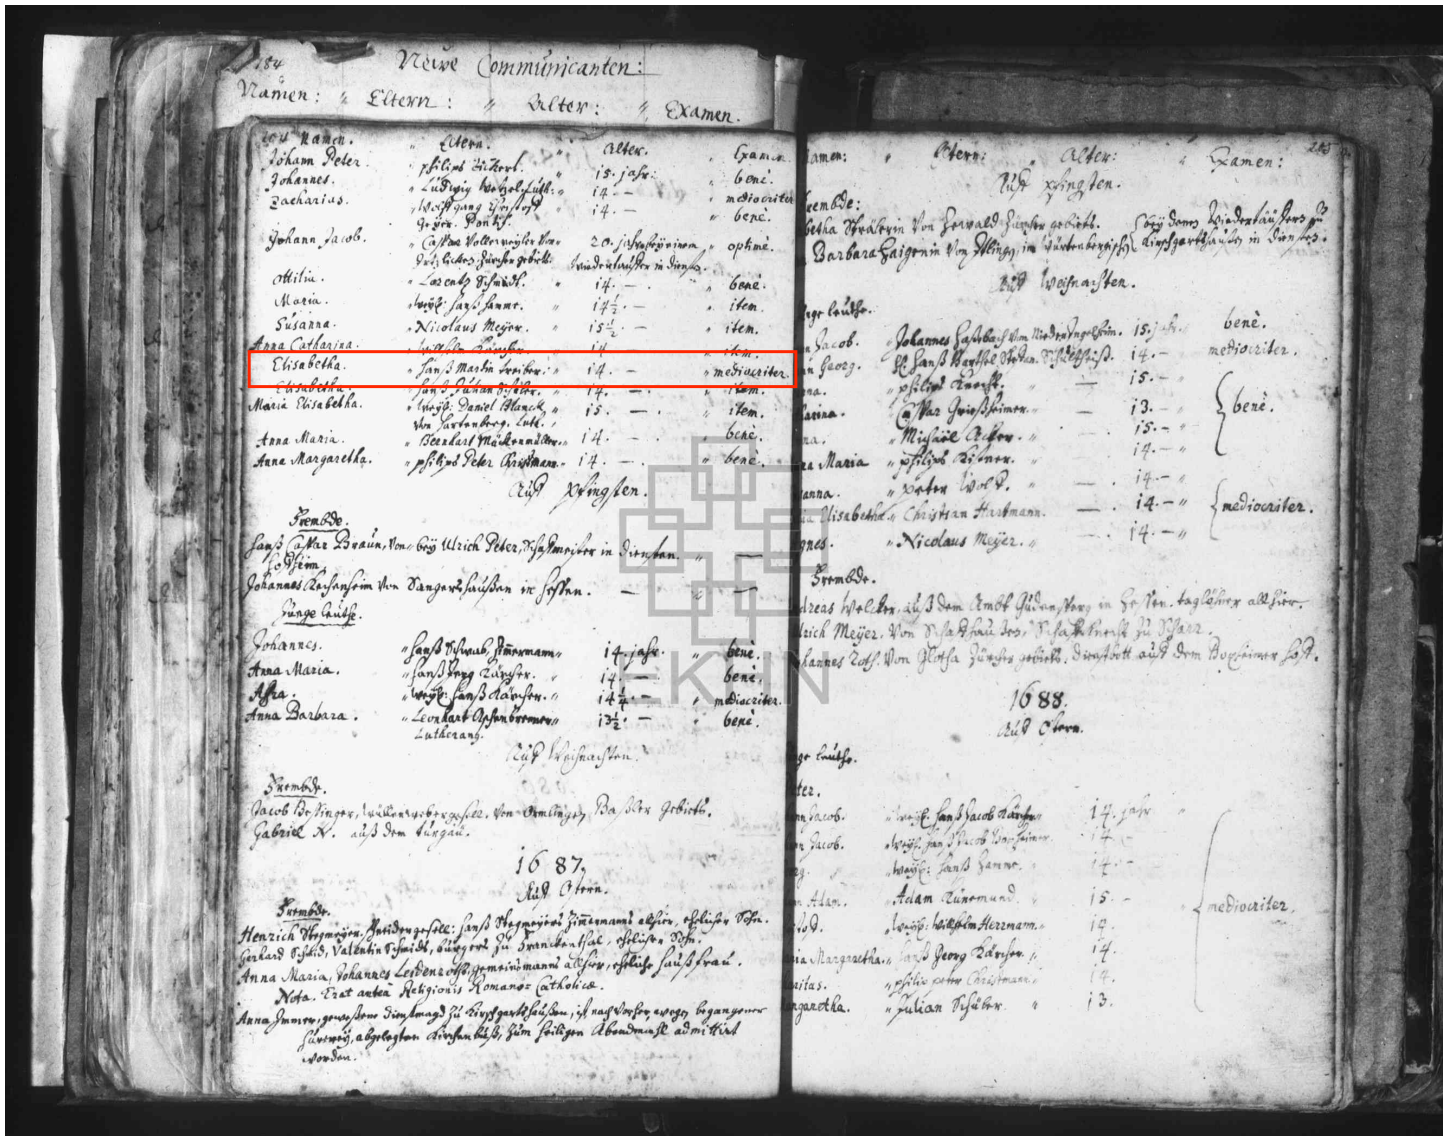 184
Neüe Communicanten:
Namen: " Eltern: " Alter: " Examen.
184 Namen. " Eltern. " Alter. " Examen.
Johann Peter. " philips 15. jahr: " benè.
Johannes. " Ludwig Wetzel, Luth: " 14 — " mediocriter
Zacharias. " Wolffgang 14. — " benè.
Johann Jacob. " Caspar Vollenweyder Von " 20. jahr, bey einem " optimè.
Zürcher gebiets. Wiedertäuffer in diensten.
Ottilia. " Lorentz Schmidt. " 14. — . " benè.
Maria. " weyl: Hanß Hamme. " 14½. — " item.
Susanna. " Nicolaus Meyer. " 15½. — " item.
Anna Catharina. " Kärcher. 14 — " item.
Elisabetha. " Hanß Martin Treiber. " 14. — " mediocriter.
Elisabetha. " Hanß Julian Schüler. " 14. — . " item.
Maria Elisabetha. " weyl: Daniel Blanck, " 15. — . " item.
von Hartenberg. Luth.
Anna Maria. " Bernhart Mückenmüller. " 14. — . " benè.
Anna Margaretha. " philips Peter Christmann " 14. — . " benè.
Auff pfingsten.
Frembde.
Hanß Caspar Braun, von " bey Ulrich Peter, in diensten. " —
Johannes von Sangershaußen in Hessen. — " —
Junge leuthe.
Johannes. " Hanß Schwab, Zimmermann " 14. jahr. " benè.
Anna Maria. " Hanß Jerg Kärcher. " 14. — " benè.
Afra. " weyl: Hanß Kärcher. " 14¼. — " mediocriter.
Anna Barbara. " Leonhart Aschenbrenner " 13½. — " benè.
Lutheranq.
Auff Weihnachten.
Frembde.
Jacob Bessinger, von Ormlingen, Baßler Gebiets.
Gabriel N. auß dem Turgau.
1687.
Auff Ostern.
Frembde.
Henrich Stegmeyer, Hanß Stegmeyers Zimmermanns allhier, ehelicher Sohn.
Gerhard Schmid, Valentin Schmids, bürgers zu Franckenthal, ehelicher Sohn.
Anna Maria, Johannes gemeinsmanns allhier, eheliche haußfrau.
Nota. Erat antea Religionis Romano-Catholicæ.
Anna Immer, geweßene dienstmagd zu Kirschgartshaußen, ist nach vorher wegen begangener
hurerey, abgelegter Kirchenbuß, zum heiligen Abendmahl admittirt
worden.
EKHN
285
Namen: " Eltern: " Alter: " Examen:
Auff pfingsten.
Frembde:
betha Strälerin von Zürcher gebiets. bey denen Wiedertäuffern zu
Barbara von im Würtenbergischen Kirschgartshaußen in diensten.
Auff Weihnachten.
Junge leuthe.
Jacob. " Johannes Haßbach von Niederingelheim. 15. jahr. " benè.
Georg. Hanß Barthel Schultheiß. 14. — " mediocriter.
" philips Knecht. — 15. — "
arina. " Caspar Grießheimer. " 13. — " benè.
" Michäel Acker. " 15. — "
Maria " philips Kißner. " 14. — "
anna. " peter Wolff. " — . 14. — "
Elisabetha. " Christian Hartmann. — . 14. — " mediocriter.
gnes. " Nicolaus Meyer. " — . 14. — "
Frembde.
dreas Welcker, auß dem Ambt Gudensperg in Hessen. taglöhner allhier.
lrich Meyer. von Schaffhaußen, Schaffknecht zu Scharr.
hannes Roth. von Zürcher gebiets, dienstbott auff dem Boxheimer hoff.
1688.
Auff Ostern.
Junge leuthe.
ter.
Jacob. " weyl: Hanß Jacob Kärcher " 14. jahr "
Jacob. " weyl: Hanß Jacob Boxheimer. 14. —
rg. " weyl: Hanß Hamme. " 14. —
Adam. Adam Künemund. " 15. — mediocriter.
" weyl: Wilhelm Herrmann. " 14.
Margaretha. " Hanß Georg Kärcher. " 14.
nitus. " philip peter Christmann. " 14.
rgaretha. " Julian Schüber. " 13.